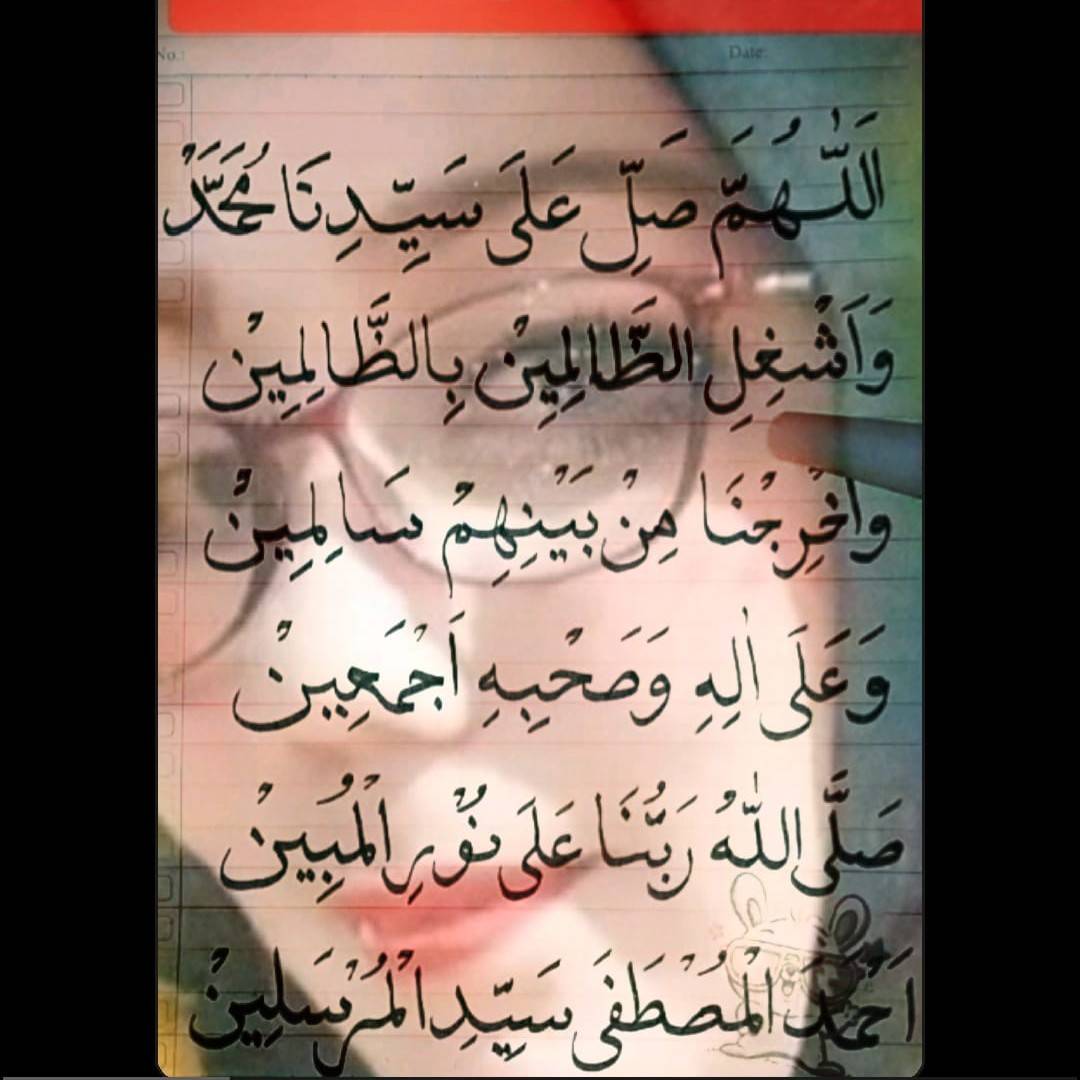 No.: Date:
اَللّٰهُمَّ صَلِّ عَلَى سَيِّدِنَا مُحَمَّدْ
وَاَشْغِلِ الظَّالِمِيْنْ بِالظَّالِمِيْنْ
وَاَخْرِجْنَا مِنْ بَيْنِهِمْ سَالِمِيْنْ
وَعَلَى اٰلِهِ وَصَحْبِهِ اَجْمَعِيْنْ
صَلَّى اللّٰهُ رَبُّنَا عَلَى نُوْرِ الْمُبِيْنْ
اَحْمَدَ الْمُصْطَفَى سَيِّدِ الْمُرْسَلِيْنْ